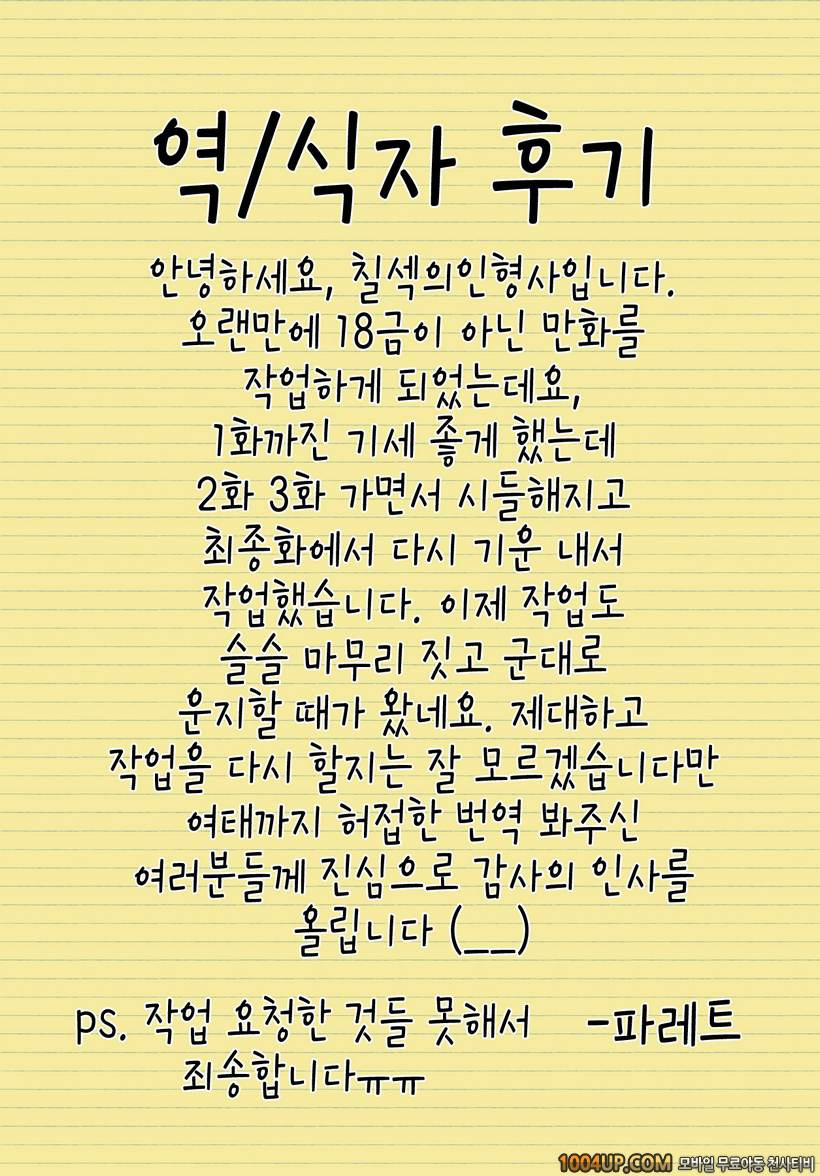 역/식자 후기
안녕하세요, 칠섹의인형사입니다.
오랜만에 18금이 아닌 만화를
작업하게 되었는데요,
1화까진 기세 좋게 했는데
2화 3화 가면서 시들해지고
최종화에서 다시 기운 내서
작업했습니다. 이제 작업도
슬슬 마무리 짓고 군대로
운지할 때가 왔네요. 제대하고
작업을 다시 할지는 잘 모르겠습니다만
여태까지 허접한 번역 봐주신
여러분들께 진심으로 감사의 인사를
올립니다 (__)
ps. 작업 요청한 것들 못해서
죄송합니다ㅠㅠ
-파레트
1004UP.COM 모바일 무료야동 천사티비